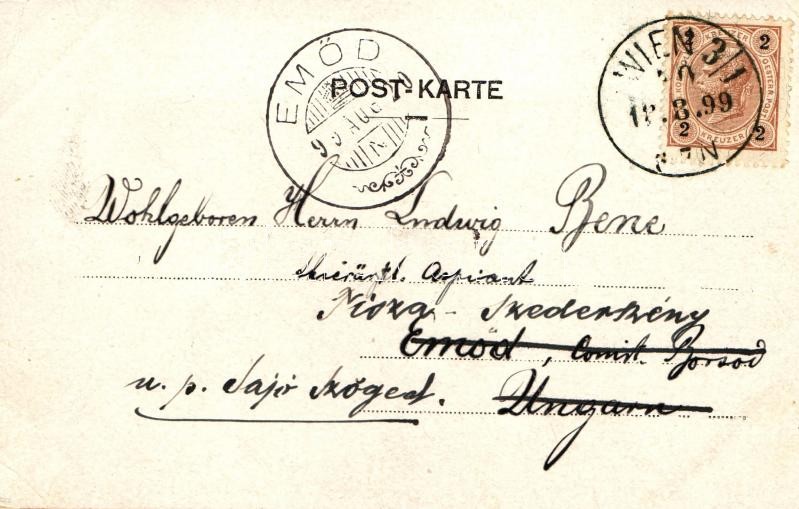 POST-KARTE
EMŐD
99 AUG
WIEN 3/1
18.8.99
7-N
2 KREUZER 2
2 KREUZER 2
Wohlgeboren Herrn Ludwig Bene
thierärztl. Aspirant
Tisza - Szederkény
Emőd, Comit. Borsod
u. p. Sajó Szöged. Ungarn